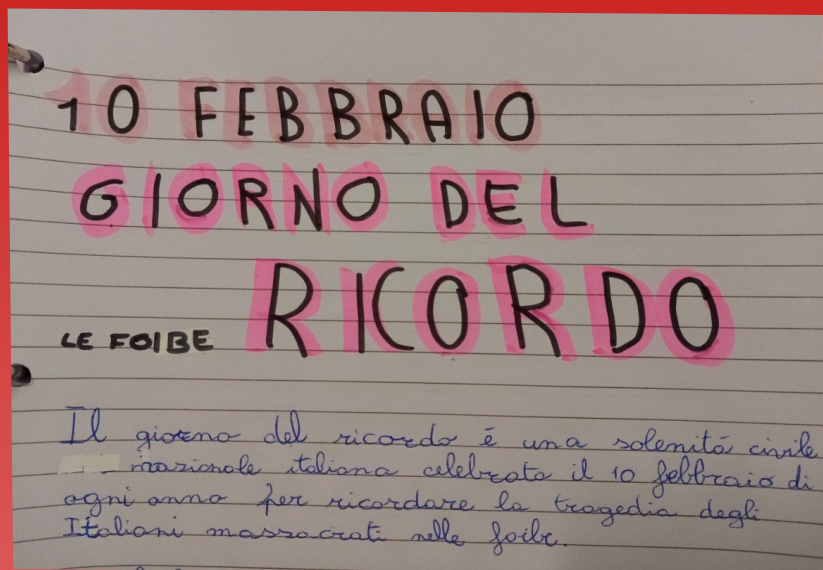 10 FEBBRAIO
GIORNO DEL
RICORDO
LE FOIBE
Il giorno del ricordo è una solenità civile
nazionale italiana celebrata il 10 febbraio di
ogni anno per ricordare la tragedia degli
Italiani massacrati nelle foibe.